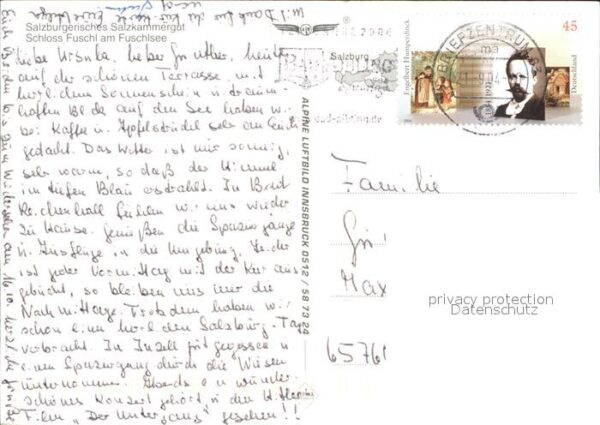 Salzburgerisches Salzkammergut
Schloss Fuschl am Fuschlsee
liebe Ursula, lieber Günther, heute
auf der schönen Terrasse mit
herrlichem Sonnenschein u. traum-
haften Blick auf den See haben wir
bei Kaffee u. Apfelstrudel sehr an Euch
gedacht. Das Wetter ist nur sonnig,
sehr warm, so daß der Himmel
im tiefen Blau erstrahlt. In Bad
Reichenhall fühlen wir uns wieder
zu Hause, genießen die Spaziergänge
u. Ausflüge in die Umgebung. Leider
ist jeder Vormittag mit der Kur aus-
gebucht, so bleiben uns nur die
Nachmittage. Trotzdem haben wir
schon einen herrlichen Salzburg-Tag
verbracht. In Inzell gut gegessen u.
einen Spaziergang durch die Wiesen
unternommen. Abends ein wunder-
schönes Konzert gehört u. den Hitler
Film "Der Untergang" gesehen!!
Euch
zum Wiedersehen am 16.10.
ALPINE LUFTBILD INNSBRUCK 0512 / 58 73 24
Salzburg
BRIEFZENTRUM
Engelbert Humperdinck
45
Deutschland
Familie
Max
6576
privacy protection
Datenschutz